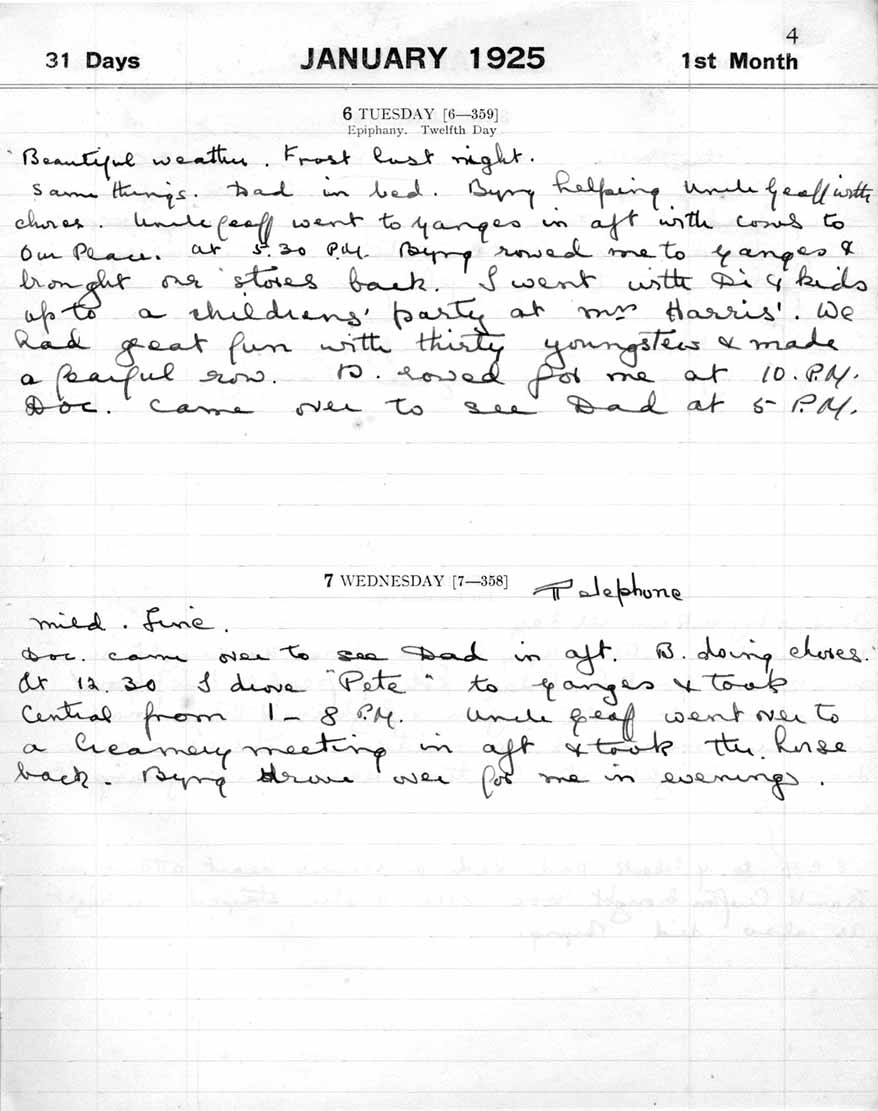 4
31 Days JANUARY 1925 1st Month
6 TUESDAY [6—359]
Epiphany. Twelfth Day
Beautiful weather. Frost last night.
Same things. Dad in bed. Byng helping Uncle Geoff with
chores. Uncle Geoff went to Ganges in aft with cows to
Our Place. At 5.30 P.M. Byng rowed me to Ganges &
brought our stores back. I went with Di & kids
up to a childrens' party at Mrs Harris'. We
had great fun with thirty youngsters & made
a fearful row. B. rowed for me at 10. P.M.
Doc. came over to see Dad at 5 P.M.
7 WEDNESDAY [7—358] Telephone
Mild. Fine.
Doc. came over to see Dad in aft. B. doing chores.
At 12.30 I drove "Pete" to Ganges & took
Central from 1 - 8 P.M. Uncle Geoff went over to
a Creamery meeting in aft & took the horse
back. Byng drove over for me in evening.